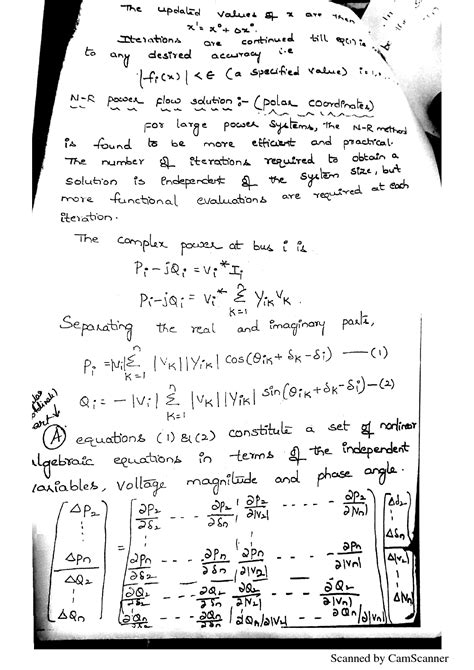 The updated values of x are then
x¹ = x⁰ + Δx⁰.
Iterations are continued till eq(1) is
to any desired accuracy i.e
|fi(x)| < ε (a specified value) i=1,...
N-R power flow solution :- (polar coordinates)
For large power systems, the N-R method
is found to be more efficient and practical.
The number of iterations required to obtain a
solution is independent of the system size, but
more functional evaluations are required at each
iteration.
The complex power at bus i is
Pi - jQi = Vi* Ii
Pi - jQi = Vi* Σ(K=1 to n) YiK VK.
Separating the real and imaginary parts,
Pi = |Vi| Σ(K=1 to n) |VK| |YiK| cos(θiK + δK - δi) —(1)
Qi = - |Vi| Σ(K=1 to n) |VK| |YiK| sin(θiK + δK - δi) —(2)
art↓
(A) equations (1) & (2) constitute a set of nonlinear
algebraic equations in terms of the independent
variables, voltage magnitude and phase angle.
[ΔP2] [∂P2/∂δ2 --- ∂P2/∂δn | ∂P2/∂|V2| --- ∂P2/∂|Vn|] [Δδ2]
[ΔPn] = [∂Pn/∂δ2 --- ∂Pn/∂δn | ∂Pn/∂|V2| --- ∂Pn/∂|Vn|] [Δδn]
[ΔQ2] [∂Q2/∂δ2 --- ∂Q2/∂δn | ∂Q2/∂|V2| --- ∂Q2/∂|Vn|] [Δ|V2|]
[ΔQn] [∂Qn/∂δ2 --- ∂Qn/∂δn | ∂Qn/∂|V2| --- ∂Qn/∂|Vn|] [Δ|Vn|]
Scanned by CamScanner